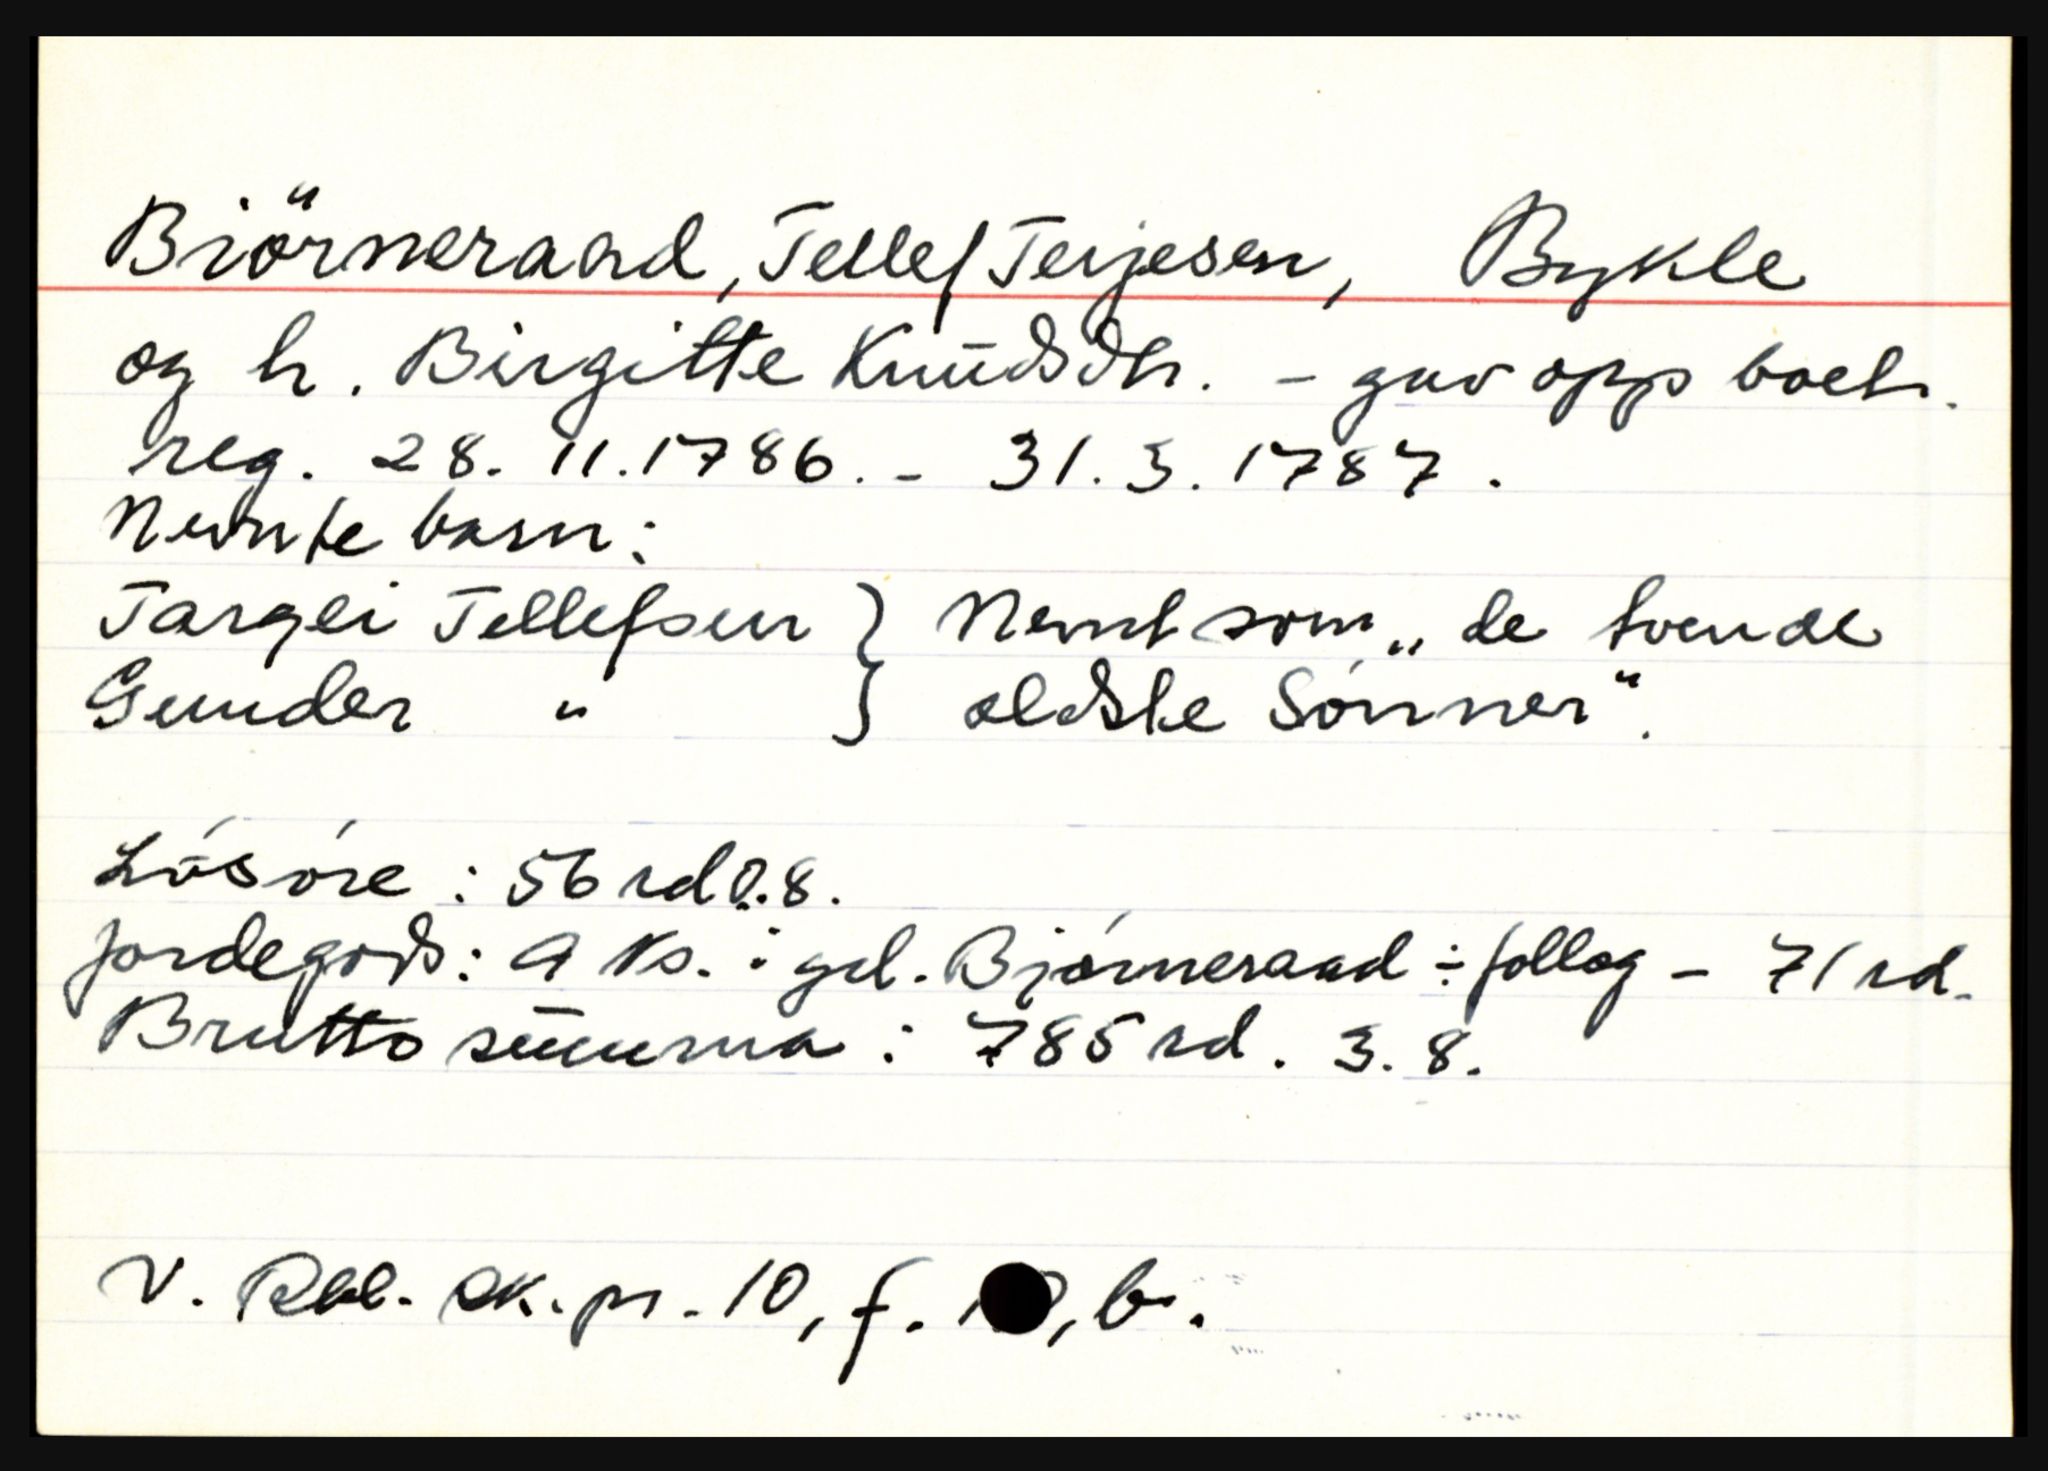 Biörneraad, Tellef Terjesen, Bykle
og h. Birgitte Knudsdtr. - gav opp boet.
reg. 28. 11. 1786. - 31. 3. 1787.
Nevnte barn:
Targei Tellefsen } Nevnt som „de tvende
Gunder " } eldste Sønner".
Løsøre: 56 rd 0.8.
Jordegods: 9 ks. i gd. Bjørneraad ÷ follog - 71 rd.
Brutto summa: 785 rd. 3. 8.
V. Rbl. sk. pr. 10, f. , b.